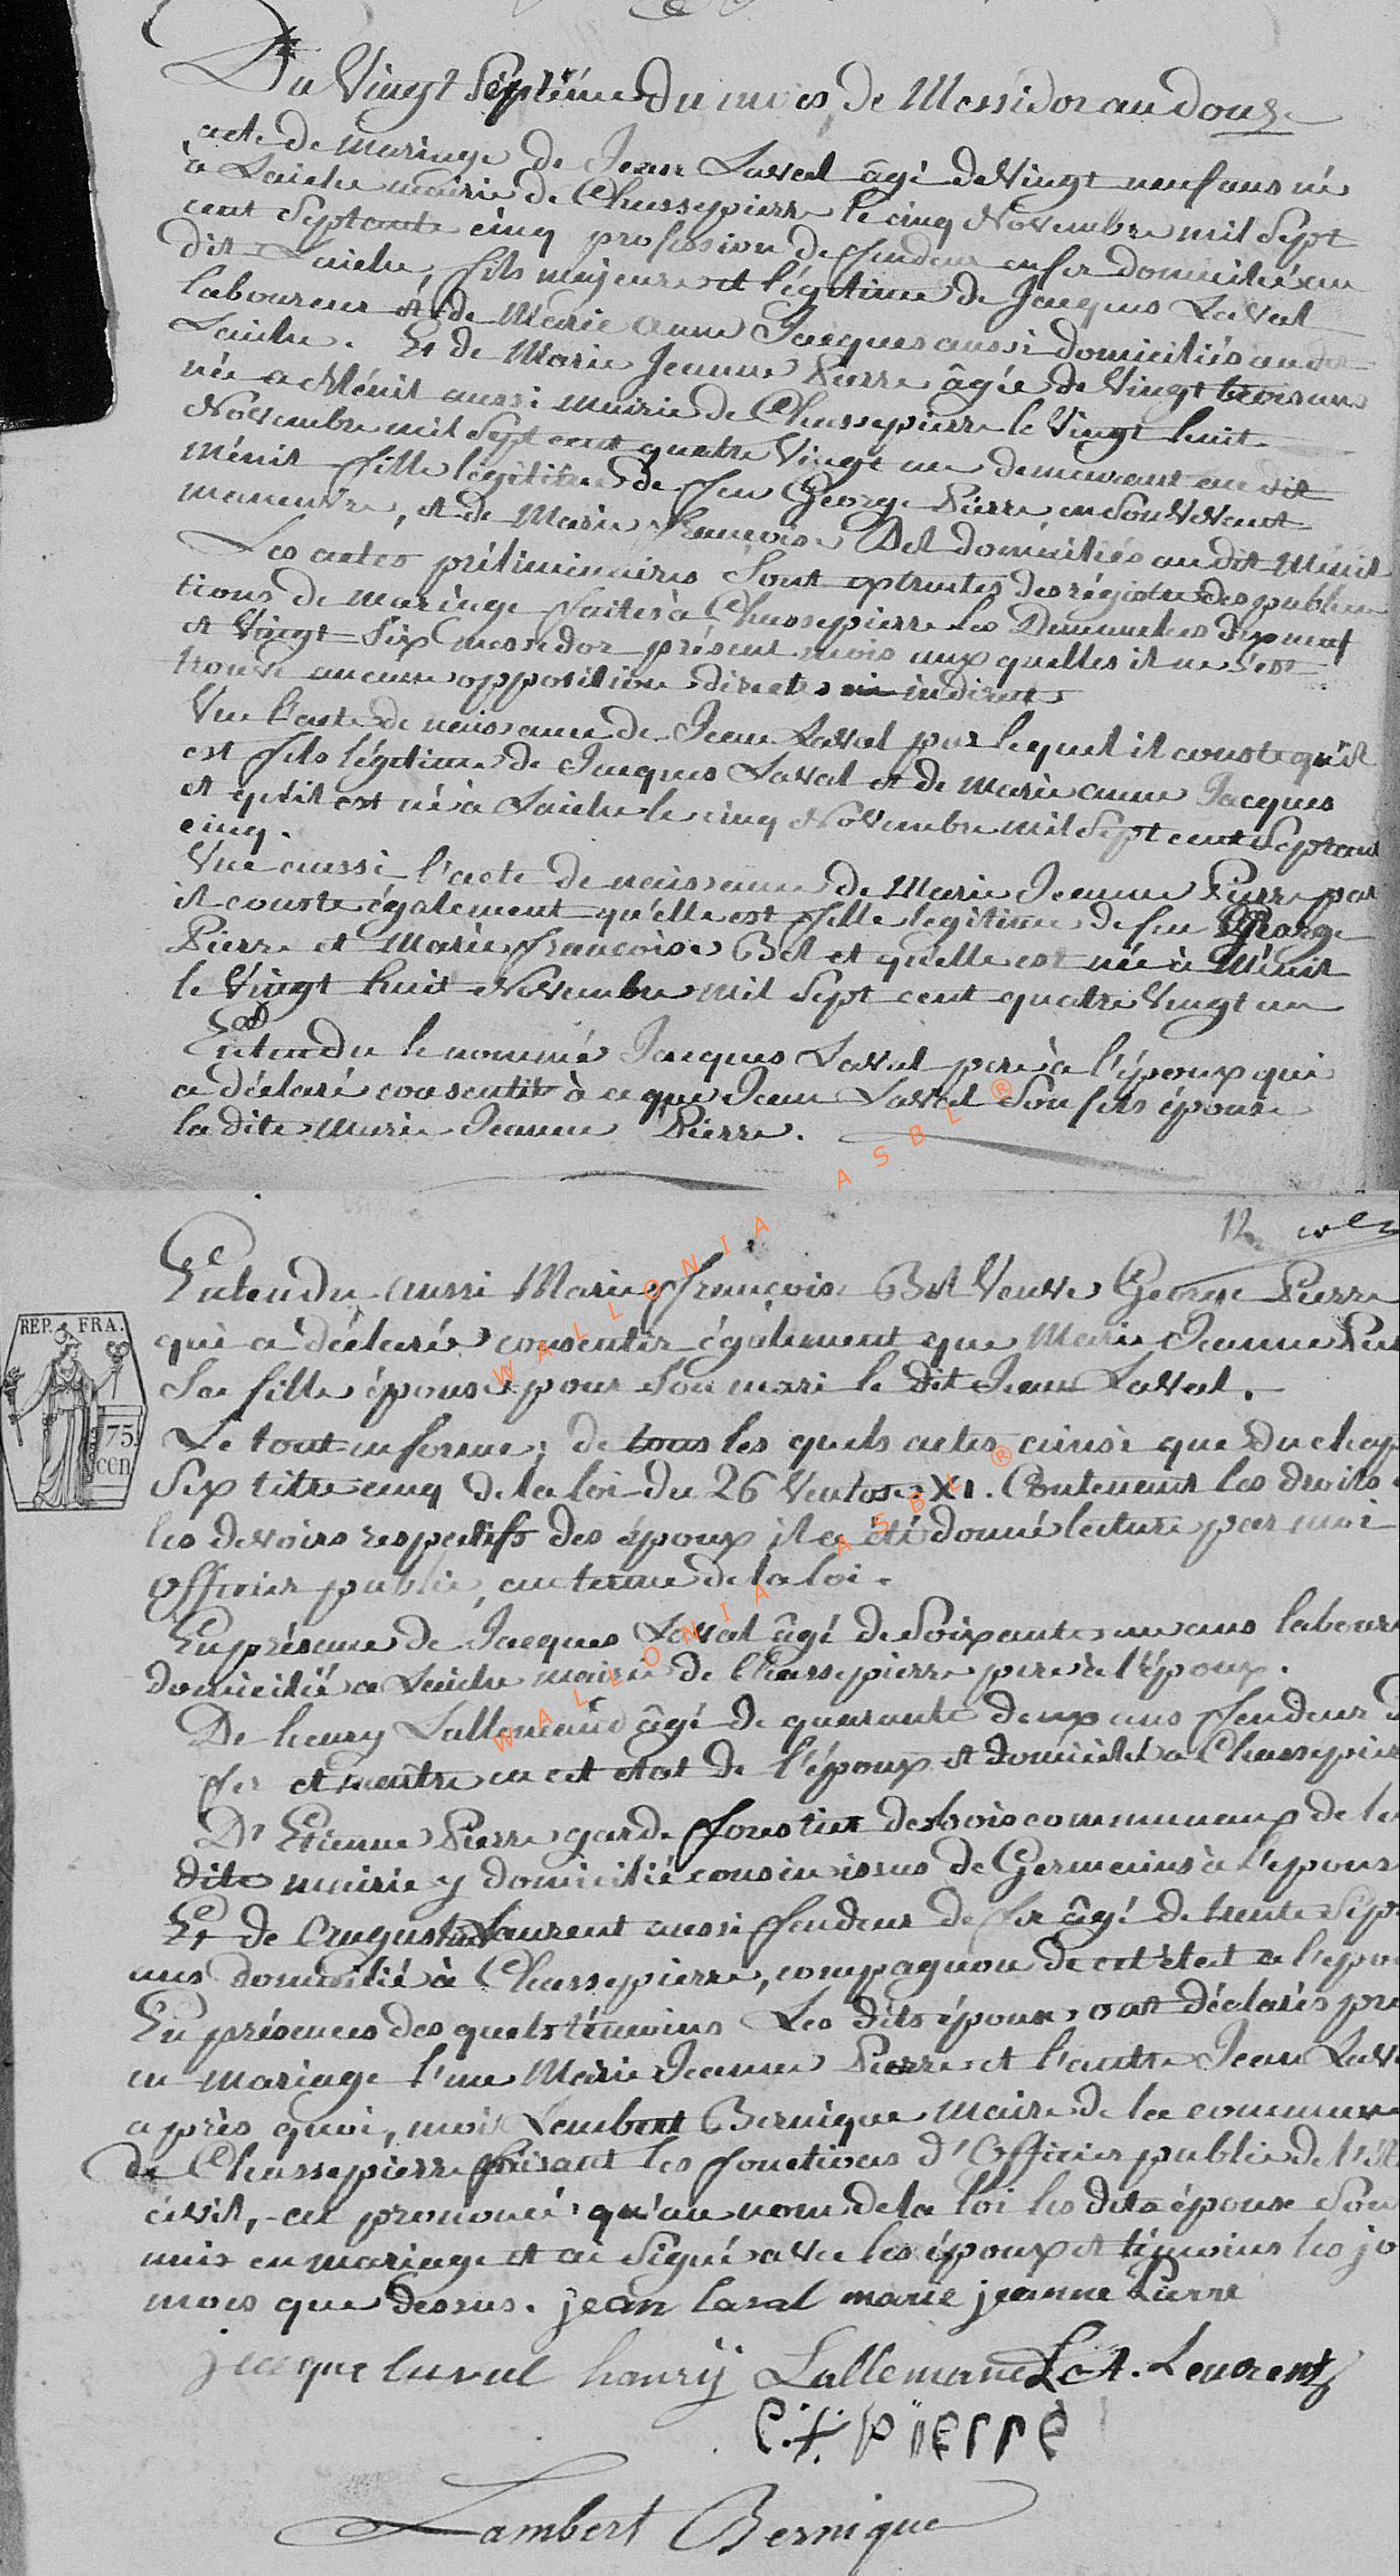 Du Vingt Septième du mois de Messidor an douze
acte de mariage de Jean Laval âgé de Vingt neuf ans né
à Laiche mairie de Chassepierre le cinq Novembre mil Sept
cent Septante cinq profession de fendeur en fer domicilié au
dit Laiche, fils majeure et légitime de Jacques Laval
laboureur et de Marie anne Jacques aussi domiciliés au dit
Laiche. Et de Marie Jeanne Pierre âgée de Vingt trois ans
née a Ménil aussi mairie de Chassepierre le Vingt huit
Novembre mil Sept cent quatre Vingt un demeurant au dit
Ménil fille légitime de feu George Pierre en Son Vivant
maneuvre, et de Marie françoise Bel domiciliés au dit Ménil
Les actes préliminaires Sont extraites des régistre des publica
tions de mariage faites à Chassepierre les Dimanches dix neuf
et Vingt Six messidor présent mois aux quelles il ne s'est
trouvé aucune opposition directes ni indirect
Vu l'acte de naissance de Jean Laval par lequel il conste qu'il
est fils légitime de Jacques Laval et de Marie anne Jacques
et qu'il est né à Laiche le cinq Novembre mil Sept cent Septant
cinq.
Vue aussi l'acte de naissance de Marie Jeanne Pierre par
il conste également qu'elle est fille legitime de feu George
Pierre et Marie françoise Bel et quelle est née à Ménil
le Vingt huit Novembre mil Sept cent quatre Vingt un
Entendu le nommé Jacques Laval pere à l'époux qui
a déclaré consentir à ce que Jean Laval Son fils épouse
la dite Marie Jeanne Pierre.
12
Entendu aussi Marie françoise Bel Veuve George Pierre
qui a déclaré consentir également que Marie Jeanne Pier
Sa fille épouse pour Son mari le dit Jean Laval.
REP. FRA.
75.
cen
Le tout en forme; de tous les quels actes ainsi que du chap
Six titre cinq de la loi du 26 Ventose XI. Contenant les droits
les devoirs respectifs des époux il a été donné lecture par moi
Officier public, au terme de la loi.
En présence de Jacques Laval âgé de Soixante un ans labour
domicilié a Laiche mairie de Chassepierre pere à l'époux.
De henry Lallemand âgé de quarante deux ans fendeur D
fer et maître en cet etat de l'époux et domicilié a Chassepier
D' Etienne Pierre garde forestier des bois communaux de la
dite mairie y domicilié cousin issus de Germains à l'epous
Et de Auguste Laurent aussi fendeur de fer âgé de trente Sept
ans domicilié à Chassepierre, compagnon de cet état a l'epo
En présences des quels témoins Les dits époux ont déclarés pre
en mariage l'une Marie Jeanne Pierre et l'autre Jean Lav
après quoi, moi Lambert Bernique Maire de la commune
de Chassepierre faisant les fonctions d'Officier public de l'ét
civil, ai prononcé qu'au nom de la loi les dits époux Son
unis en mariage et ai Signé avec les époux et témoins les jo
mois que dessus. jean laval marie jeanne Pierre
jacque laval henrÿ Lallemand L. A. Laurent
E.+. pierre
Lambert Bernique
WALLONIA ASBL ®
WALLONIA ASBL ®